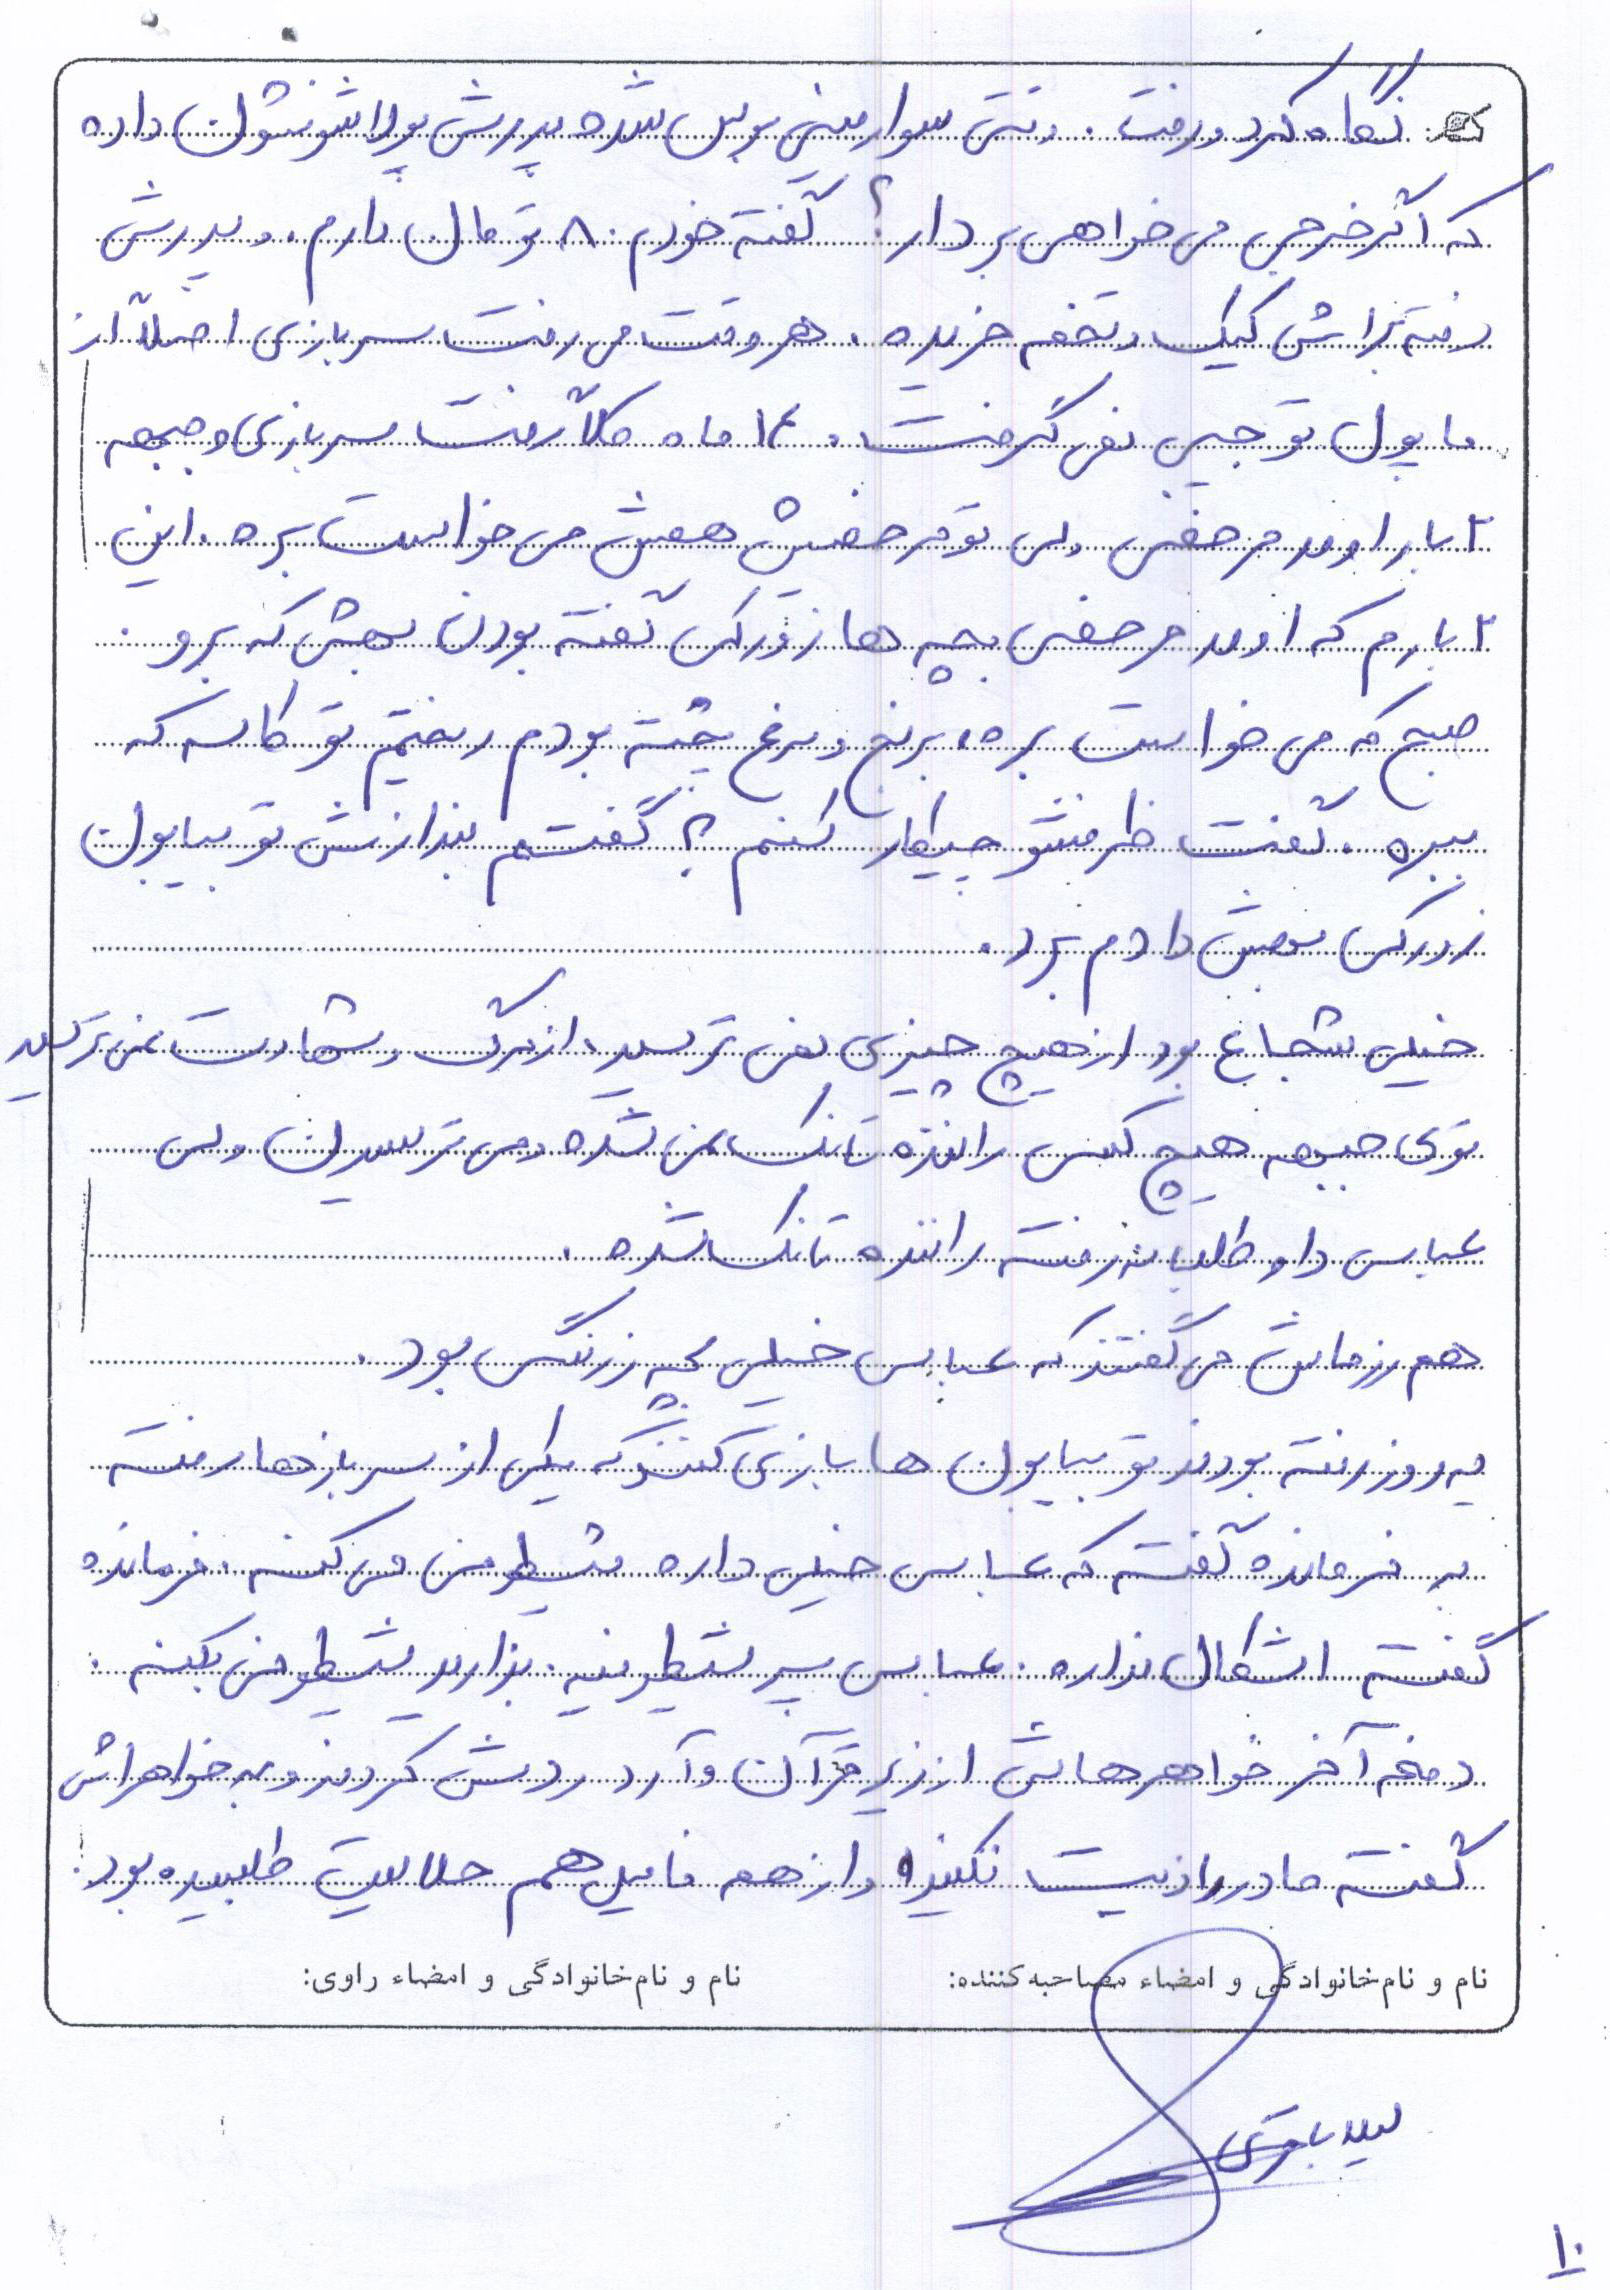 نگاه کرد و رفت. وقتی سوار مینی بوس شده پدرش پولاشو نشون داده
که اگر خرجی می خواهی بردار؟ گفته خودم ۸۰ تومان دارم. و پدرش
رفته براش کیک و تخمه خریده. هر وقت می رفت سربازی اصلاً از
ما پول تو جیبی نمی گرفت. ۱۴ ماه کلاً رفت سربازی و جبهه
۲ بار اومد مرخصی ولی تو مرخصیش همش می خواست بره. این
۲ بارم که اومد مرخصی بچه ها زورکی گفته بودن بهش که برو.
صبح که می خواست بره، برنج و مرغ پخته بودم ریختم تو کاسه که
ببره. گفت ظرفشو چیکار کنم؟ گفتم بندازش تو بیابون
زورکی بهش دادم برد.
خیلی شجاع بود از هیچ چیزی نمی ترسید، از مرگ و شهادت نمی ترسید
توی جبهه هیچ کس راننده تانک نمی شده و می ترسیدن ولی
عباس داوطلبانه رفته راننده تانک شده.
هم رزماش می گفتند که عباس خیلی بچه زرنگی بود.
یه روز رفته بودند تو بیابون ها بازی کنند که یکی از سربازها رفته
به فرمانده گفته که عباس خیلی داره شیطونی می کنه. فرمانده
گفته اشکال نداره. عباس پسر شیطونیه. بذارید شیطونی بکنه.
دفعه آخر خواهرهاش از زیر قرآن و آرد ردش کردند و به خواهراش
گفته مادر را اذیت نکنید و از همه فامیل هم حلالیت طلبیده بود.
نام و نام خانوادگی و امضاء مصاحبه کننده: نام و نام خانوادگی و امضاء راوی:
باقری
۱۰